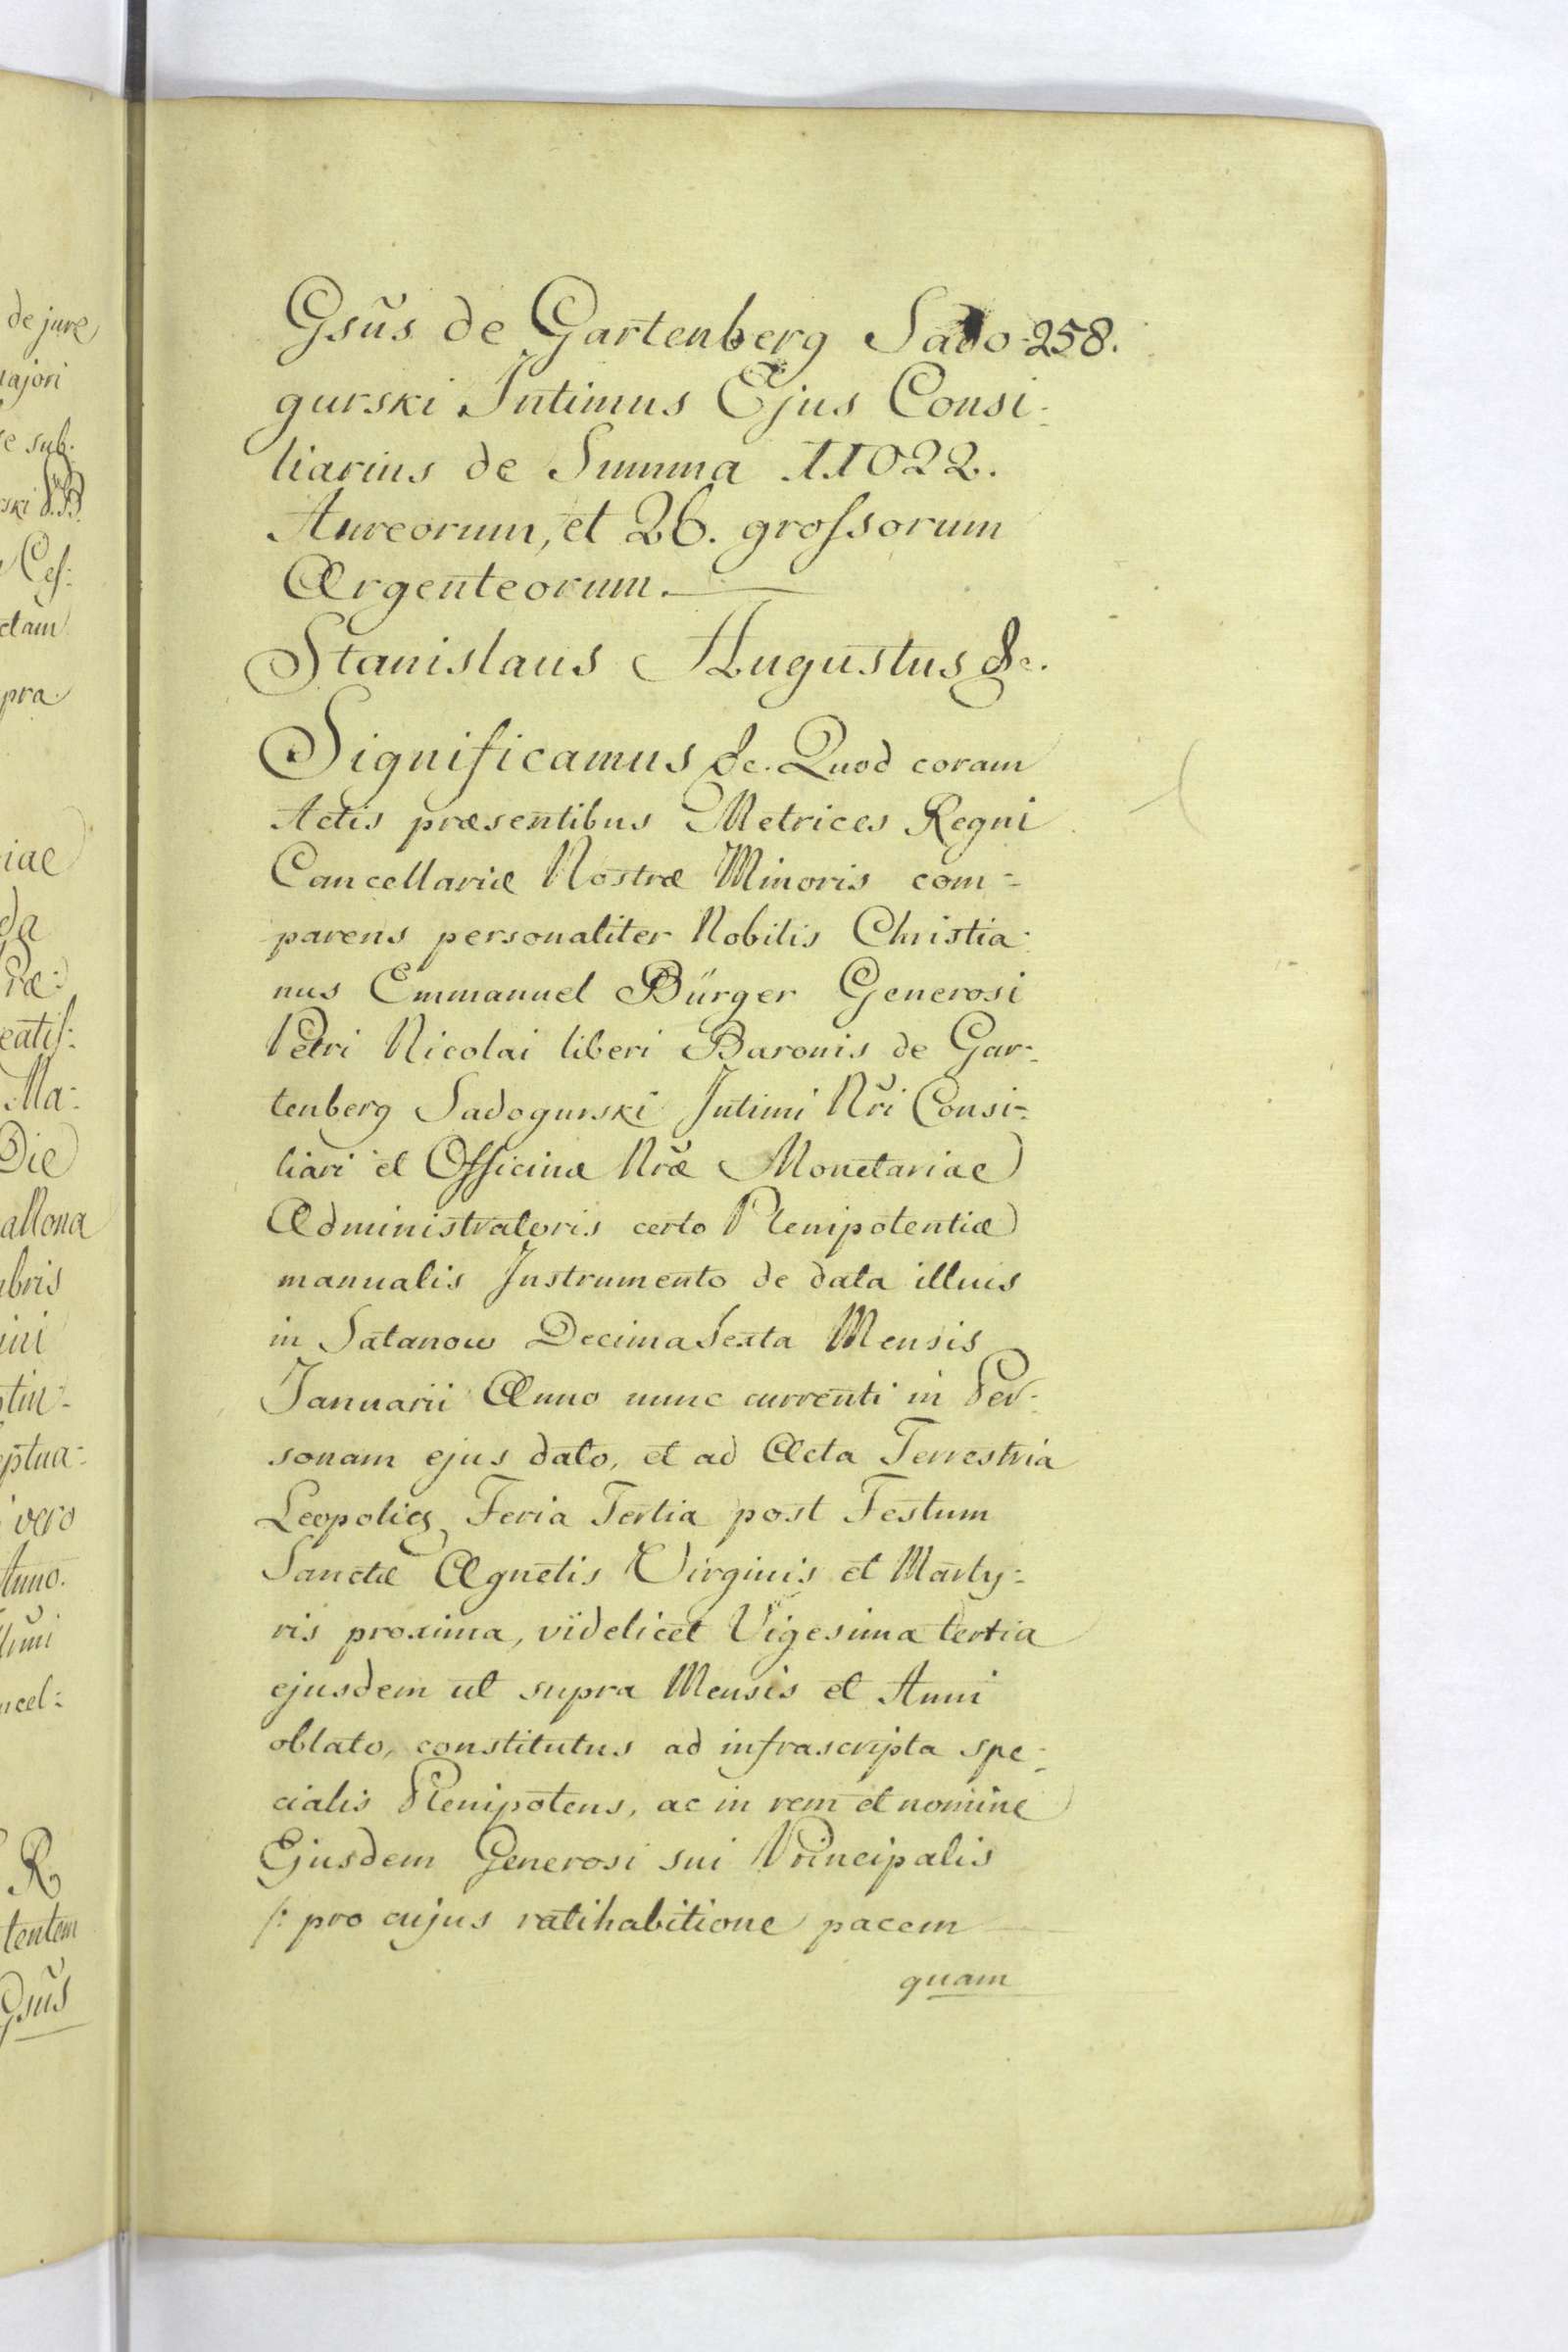 de jure
ajori
e sub:
ski S.R.
Ces:
ctam
pra
iae
da
Præ:
eatis:
Ma:
Die
allona
bris
ini
tin-
eptua:
vero
Anno.
cel:
R
tentem
Gsũs
Gsũs de Gartenberg Sado- 258.
gurski Intimus Ejus Consi-
liarius de Summa 11022.
Aureorum, et 26. grossorum
Argenteorum.
Stanislaus Augustus &c.
Significamus &c. Quod coram
Actis præsentibus Metrices Regni
Cancellariæ Nostræ Minoris com-
parens personaliter Nobilis Christia-
nus Emmanuel Bürger Generosi
Petri Nicolai liberi Baronis de Gar-
tenberg Sadogurski Intimi Nr̃i Consi-
liari et Officinæ Nr̃æ Monetariae
Administratoris certo Plenipotentiæ
manualis Instrumento de data illius
in Satanow Decima Sexta Mensis
Januarii Anno nunc currenti in Per-
sonam ejus dato, et ad Acta Terrestria
Leopolien Feria Tertia post Festum
Sanctæ Agnetis Virginis et Marty-
ris proxima, videlicet Vigesima tertia
ejusdem ut supra Mensis et Anni
oblato, constitutus ad infrascripta spe-
cialis Plenipotens, ac in rem et nomine
Ejusdem Generosi sui Principalis
/: pro cujus ratihabitione pacem
quam